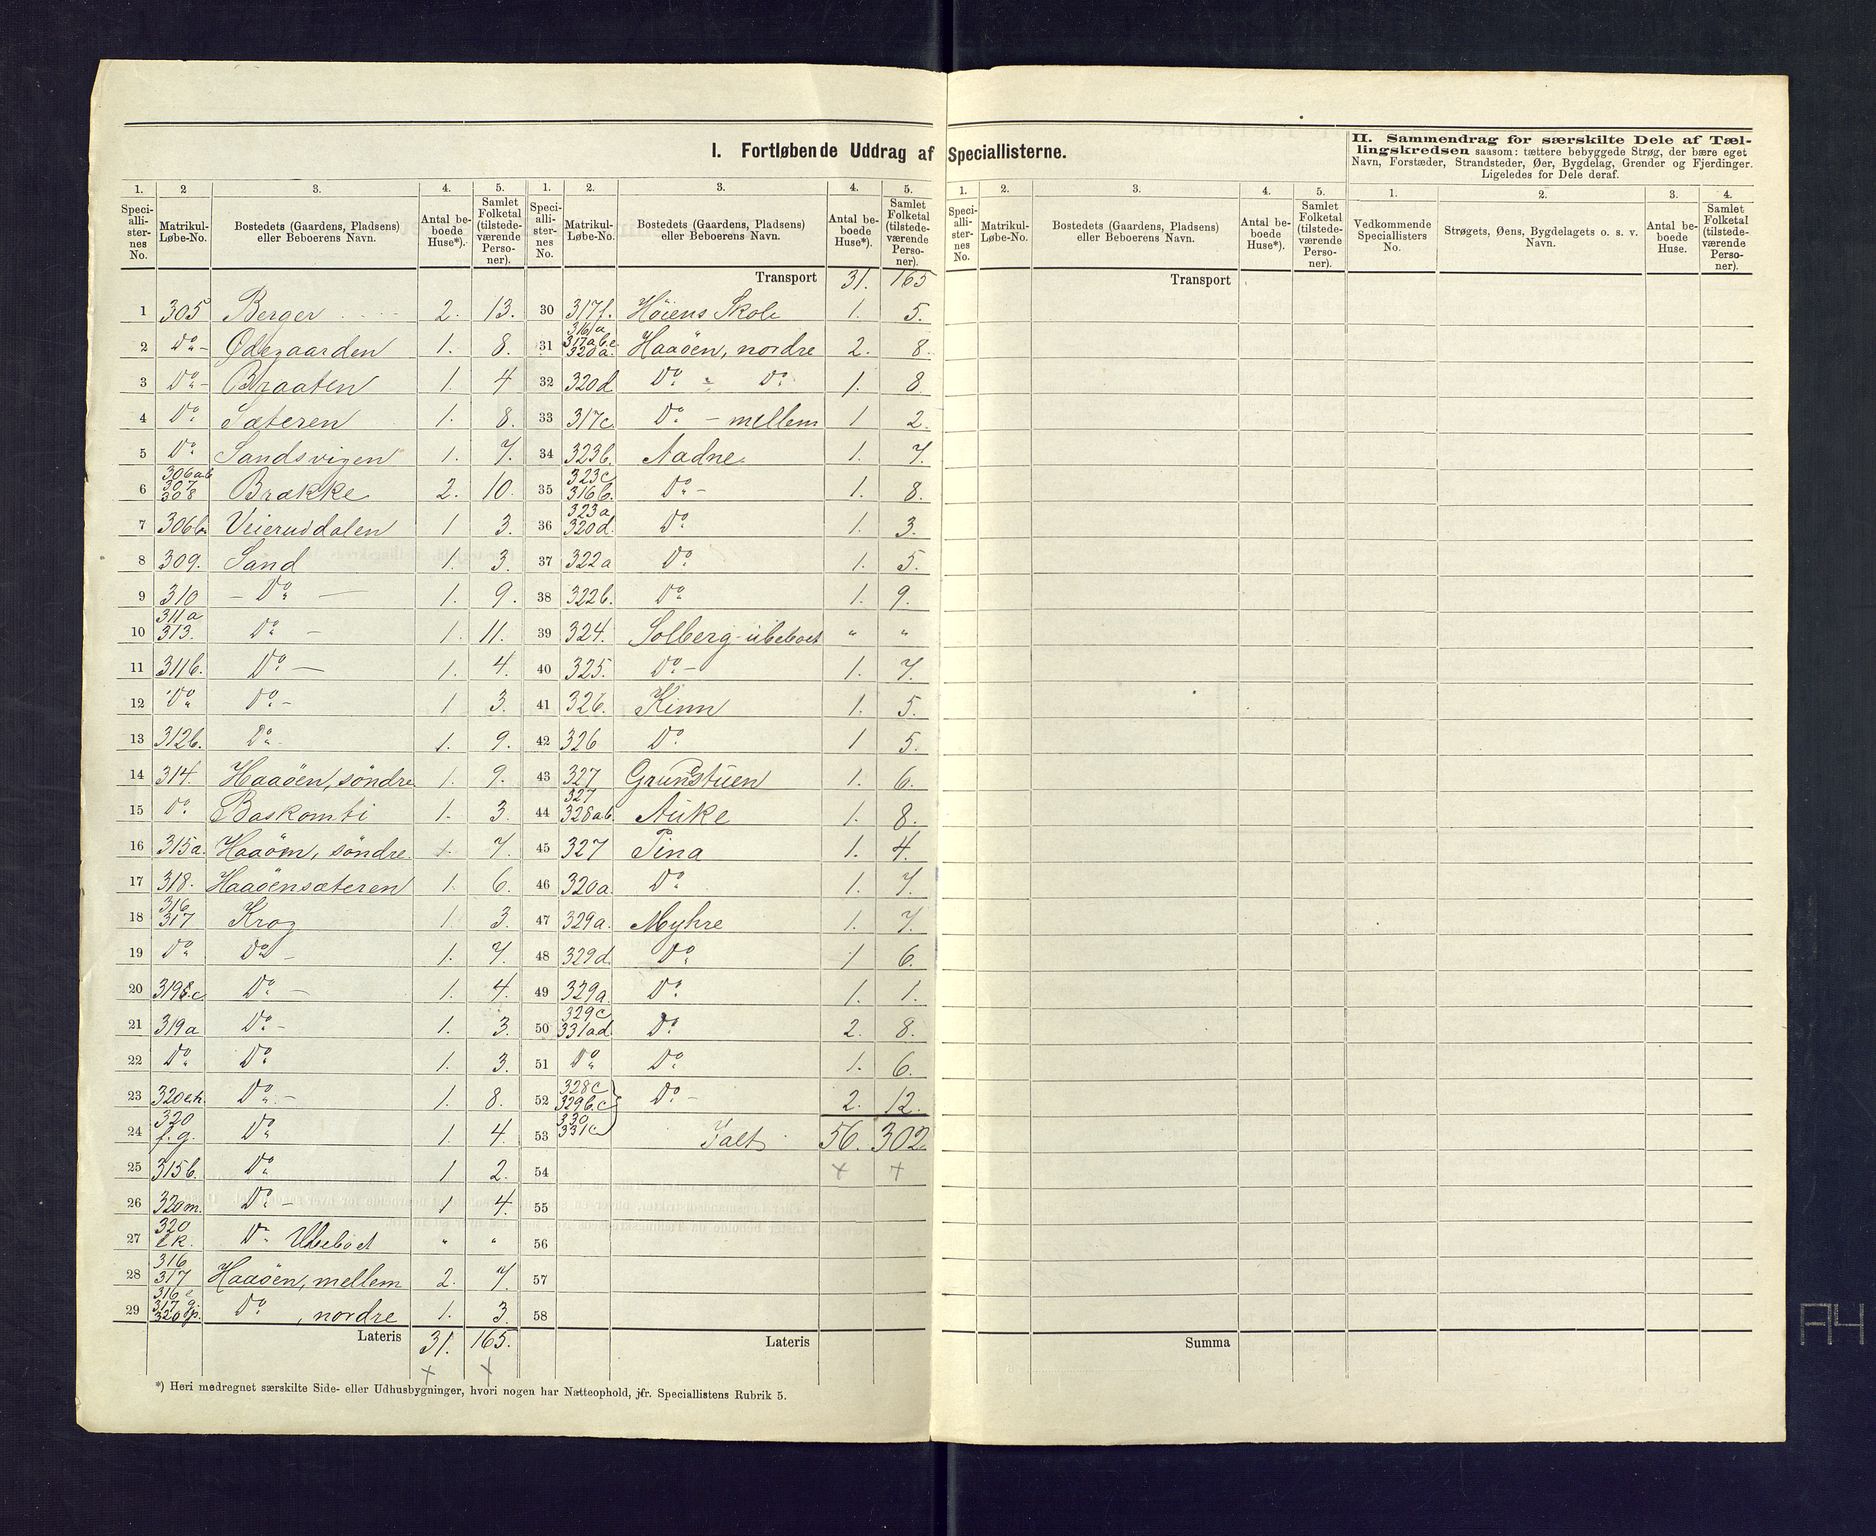 I. Fortløbende Uddrag af Speciallisterne.
II. Sammendrag for særskilte Dele af Tællingskredsen saasom: tættere bebyggede Strøg, der bære eget
Navn, Forstæder, Strandsteder, Øer, Bygdelag, Grender og Fjerdinger.
Ligeledes for Dele deraf.
1. 2 3. 4. 5. 1. 2. 3. 4. 5. 1. 2. 3. 4. 5. 1. 2. 3. 4.
Specialli-sternes No. Matrikul-Løbe-No. Bostedets (Gaardens, Pladsens) eller Beboerens Navn. Antal beboede Huse*). Samlet Folketal (tilstedeværende Personer).
Speciallisternes No. Matrikul-Løbe-No. Bostedets (Gaardens, Pladsens) eller Beboerens Navn. Antal beboede Huse*). Samlet Folketal (tilstedeværende Personer).
Speciallisternes No. Matrikul-Løbe-No. Bostedets (Gaardens, Pladsens) eller Beboerens Navn. Antal beboede Huse*). Samlet Folketal (tilstedeværende Personer).
Vedkommende Speciallisters No. Strøgets, Øens, Bygdelagets o. s. v. Navn. Antal beboede Huse. Samlet Folketal (tilstedeværende Personer).
1 305 Berger 2. 13.
2 Do - Ødegaarden 1. 8.
3 Do - Braaten 1. 4
4 Do Sæteren 1. 8.
5 Do Sandsvigen 1. 7.
6 306ab 307 308 Brække 2. 10.
7 306b. Veieruddalen 1 3.
8 309. Sand 1. 3.
9 310 - Do - 1. 9.
10 311a 313. Do - 1. 11.
11 311b. Do - 1. 4.
12 Do Do - 1 3.
13 312b. Do 1. 9.
14 314. Haaöen, söndre 1. 9.
15 Do Baskomti 1. 3.
16 315a. Haaöen, söndre. 1. 7.
17 318. Haaöensæteren 1. 6.
18 316 317 Krog 1. 3.
19 Do Do - 1. 7.
20 Do - 1. 4.
21 319a Do - 1. 3.
22 Do Do 1. 3.
23 Do - 1. 8.
24 320 f.g. Do 1. 4.
25 315b. Do 1 2.
26 320m. Do - 1 4.
27 320 Do Ubeboet " "
28 316 317 Haaöen, mellem 2. 7.
29 Do , nordre 1. 3.
Lateris 31. 165.
Transport 31. 165
30 317f. Höiens Skole 1. 5.
31 Haaöen, nordre 2. 8.
32 320d Do " Do 1. 8.
33 317c. Do - mellem 1 2.
34 323b. Aadne. 1. 7.
35 323c 316b. Do - 1. 8.
36 323a 320d. Do 1. 3.
37 322a Do 1. 5.
38 322b. Do 1. 9.
39 324. Solberg - ubeboet " "
40 325. Do - 1. 7.
41 326. Kinn 1. 5.
42 326 Do 1 5.
43 327 Grunstuen 1. 6.
44 327 328ab. Auke 1. 8.
45 327 Pina 1. 4.
46 320a. Do 1. 7.
47 329a. Myhre 1. 7.
48 329d. Do 1 6.
49 329a. Do 1. 1.
50 329c 331ad. Do 2. 8.
51 Do Do 1. 6.
52 328c 329b.c. Do - 2. 12.
53 330 331c Ialt 56. 302
54
55
56
57
58
Lateris
Transport
Summa
*) Heri medregnet særskilte Side- eller Udhusbygninger, hvori nogen har Natteophold, jfr. Speciallistens Rubrik 5.
A4